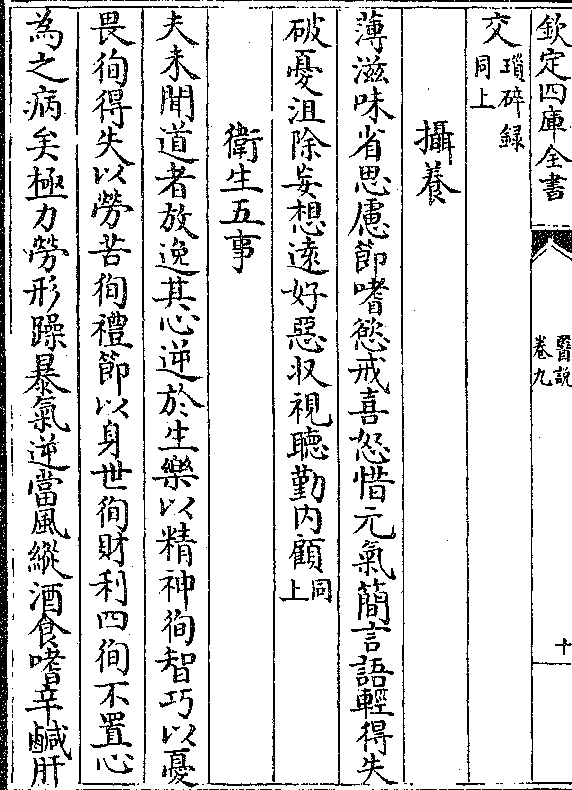 欽定四庫全書
醫說
卷九
十
交瑣碎録同上
攝養
薄滋味省思慮節嗜慾戒喜怒惜元氣簡言語輕得失
破憂沮除妄想遠好惡収視聴勤内顧同上
衛生五事
夫未聞道者放逸其心逆於生樂以精神徇智巧以憂
畏徇得失以勞苦徇禮節以身世徇財利四徇不置心
為之病矣極力勞形躁暴氣逆當風縱酒食嗜辛鹹肝